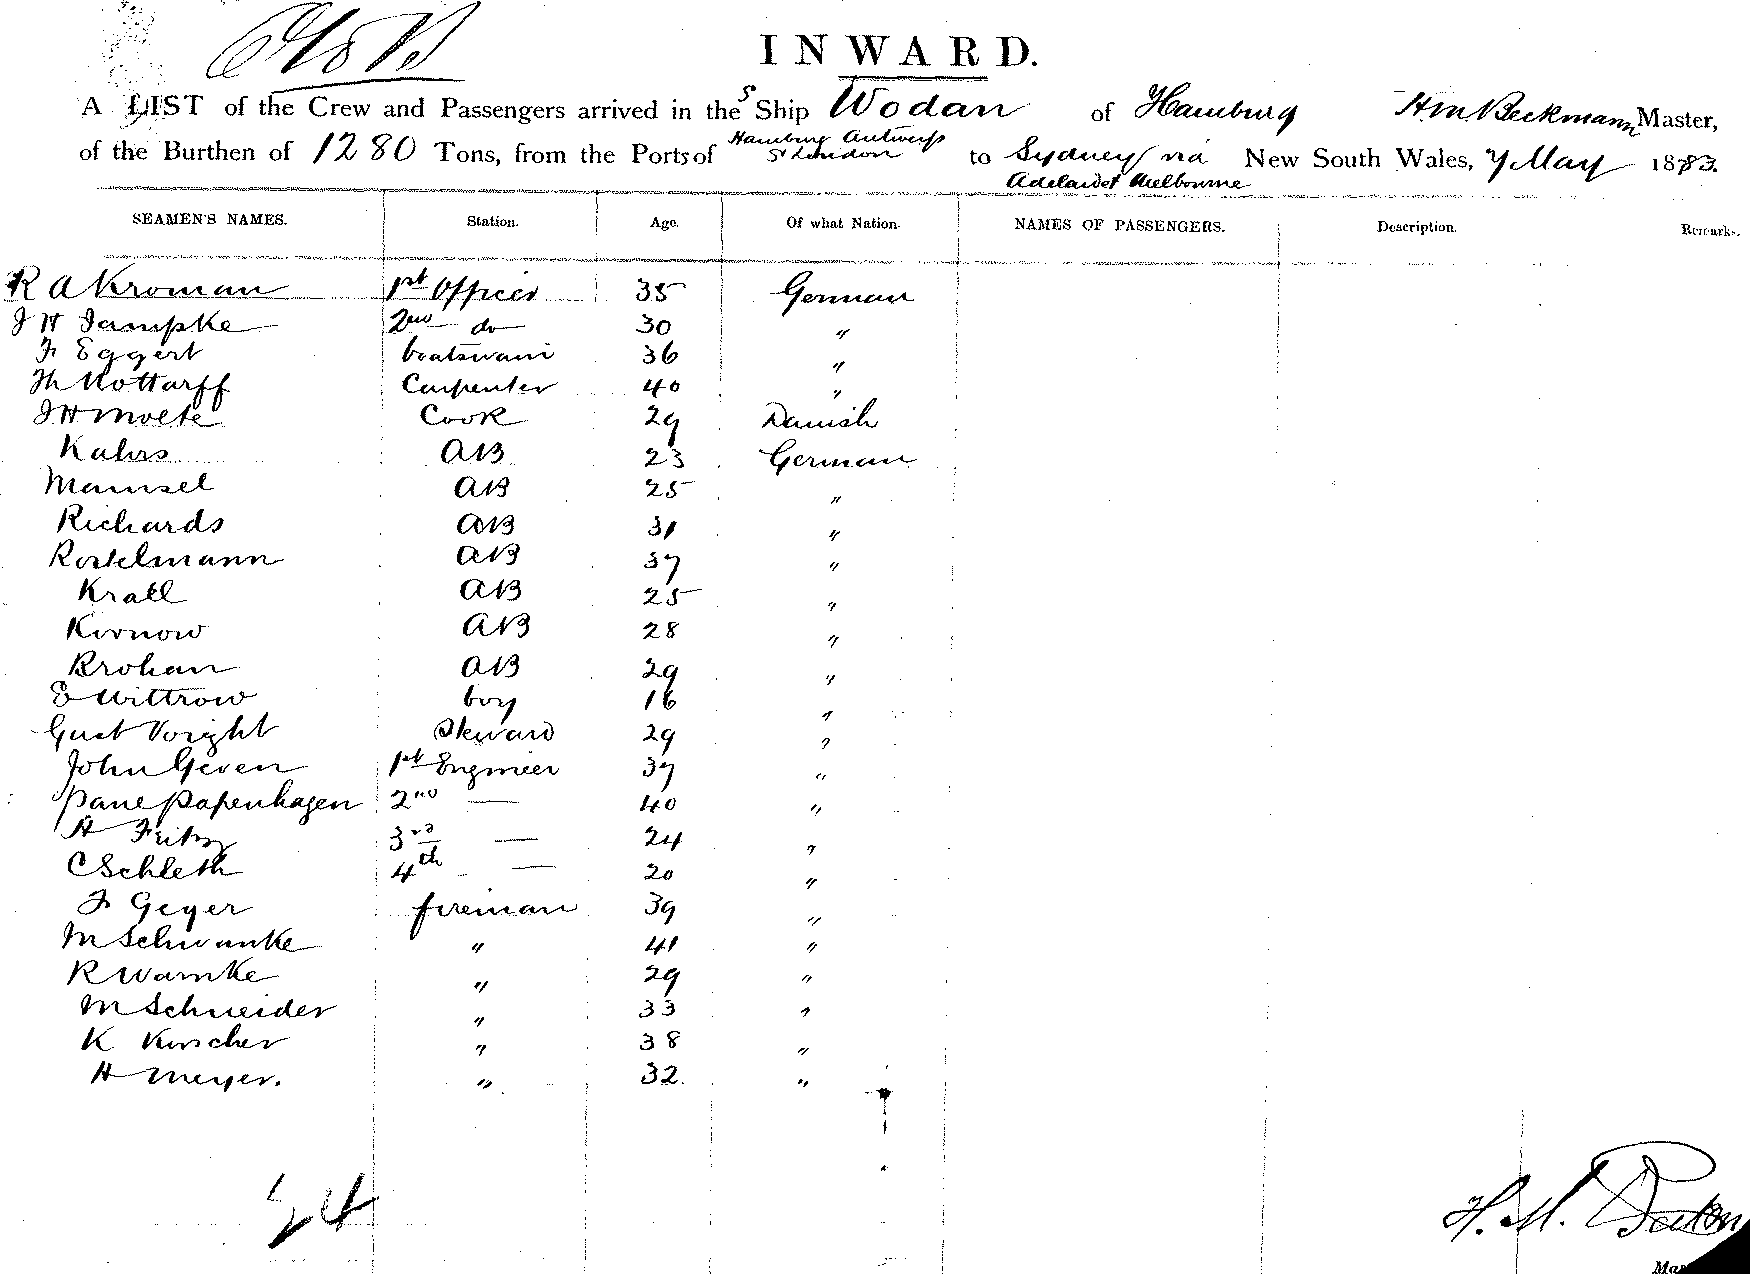 INWARD.
A LIST of the Crew and Passengers arrived in the S Ship Wodan of Hamburg HM Beckmann Master,
of the Burthen of 1280 Tons, from the Ports of Hamburg Antwerp & London to Sydney via Adelaide & Melbourne New South Wales, 7 May 1883.
SEAMEN'S NAMES. Station. Age. Of what Nation. NAMES OF PASSENGERS. Description. Remarks.
R A Kroman 1st Officer 35 German
J H Jampke 2nd do 30 "
F Eggert boatswain 36 "
Th Kottarff Carpenter 40 "
J H Molte Cook 29 Danish
Kahrs AB 23 German
Mamsel AB 25 "
Richards AB 31 "
Rostelmann AB 37 "
Krall AB 25 "
Kronow AB 28 "
Brohan AB 29 "
E Wittrow boy 16 "
Gust Voight Steward 29 "
John Geven 1st Engineer 37 "
Papenhagen 2nd — 40 "
H Fritz 3rd — 24 "
C Schleth 4th — 20 "
F Geyer fireman 39 "
M Schwanke " 41 "
R Warnke " 29 "
M Schneider " 33 "
K Kirscher " 38 "
H Meyer. " 32 "
24
H. M. Beckm
Mas